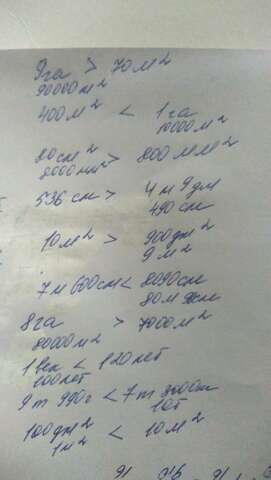 9га > 70м²
90000м²
400м² < 1га
10000м²
20см² > 800мм²
2000мм²
536см > 4м 9дм
490см
10м² > 900дм²
9м²
7м 600см < 8090см
80м 90см
8га > 7000м²
80000м²
1век < 120лет
100лет
9т 990г < 7т
10т
100дм² < 10м²
1м²